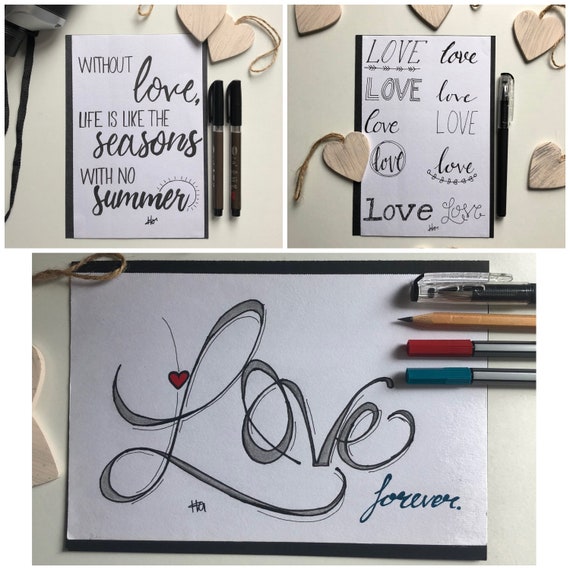 WITHOUT
love,
LIFE IS LIKE THE
seasons
WITH NO
summer
LOVE love
LOVE love
love LOVE
love love
Love Love
Love
forever.